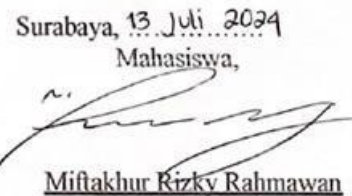 Surabaya, 13 Juli 2024
Mahasiswa,
Miftakhur Rizky Rahmawan